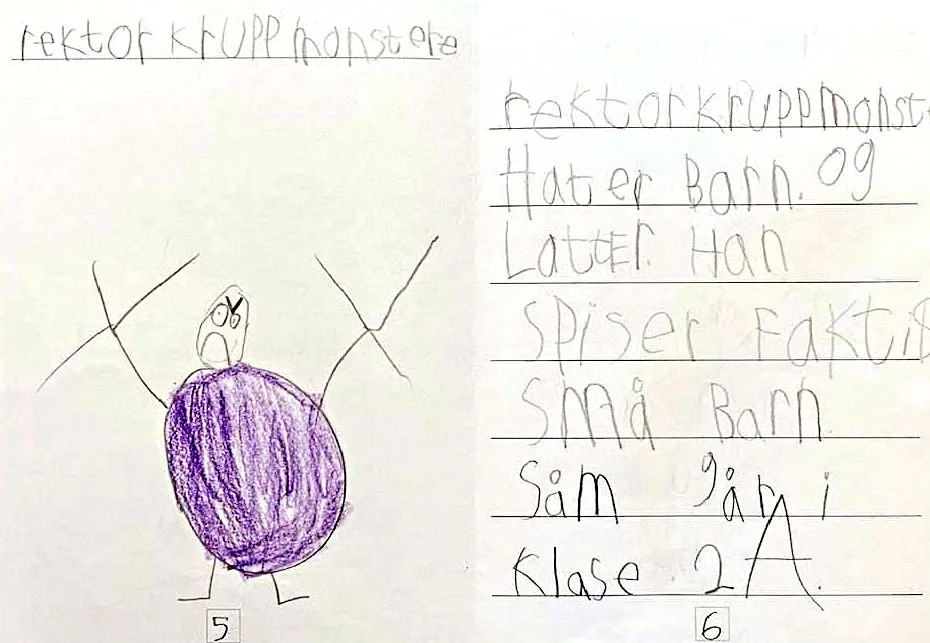 rektor krupp monstere
5
rektor krupp monst
Hater Barn. og
Latter. Han
spiser Fakti
små Barn
såm går i
Klase 2A.
6